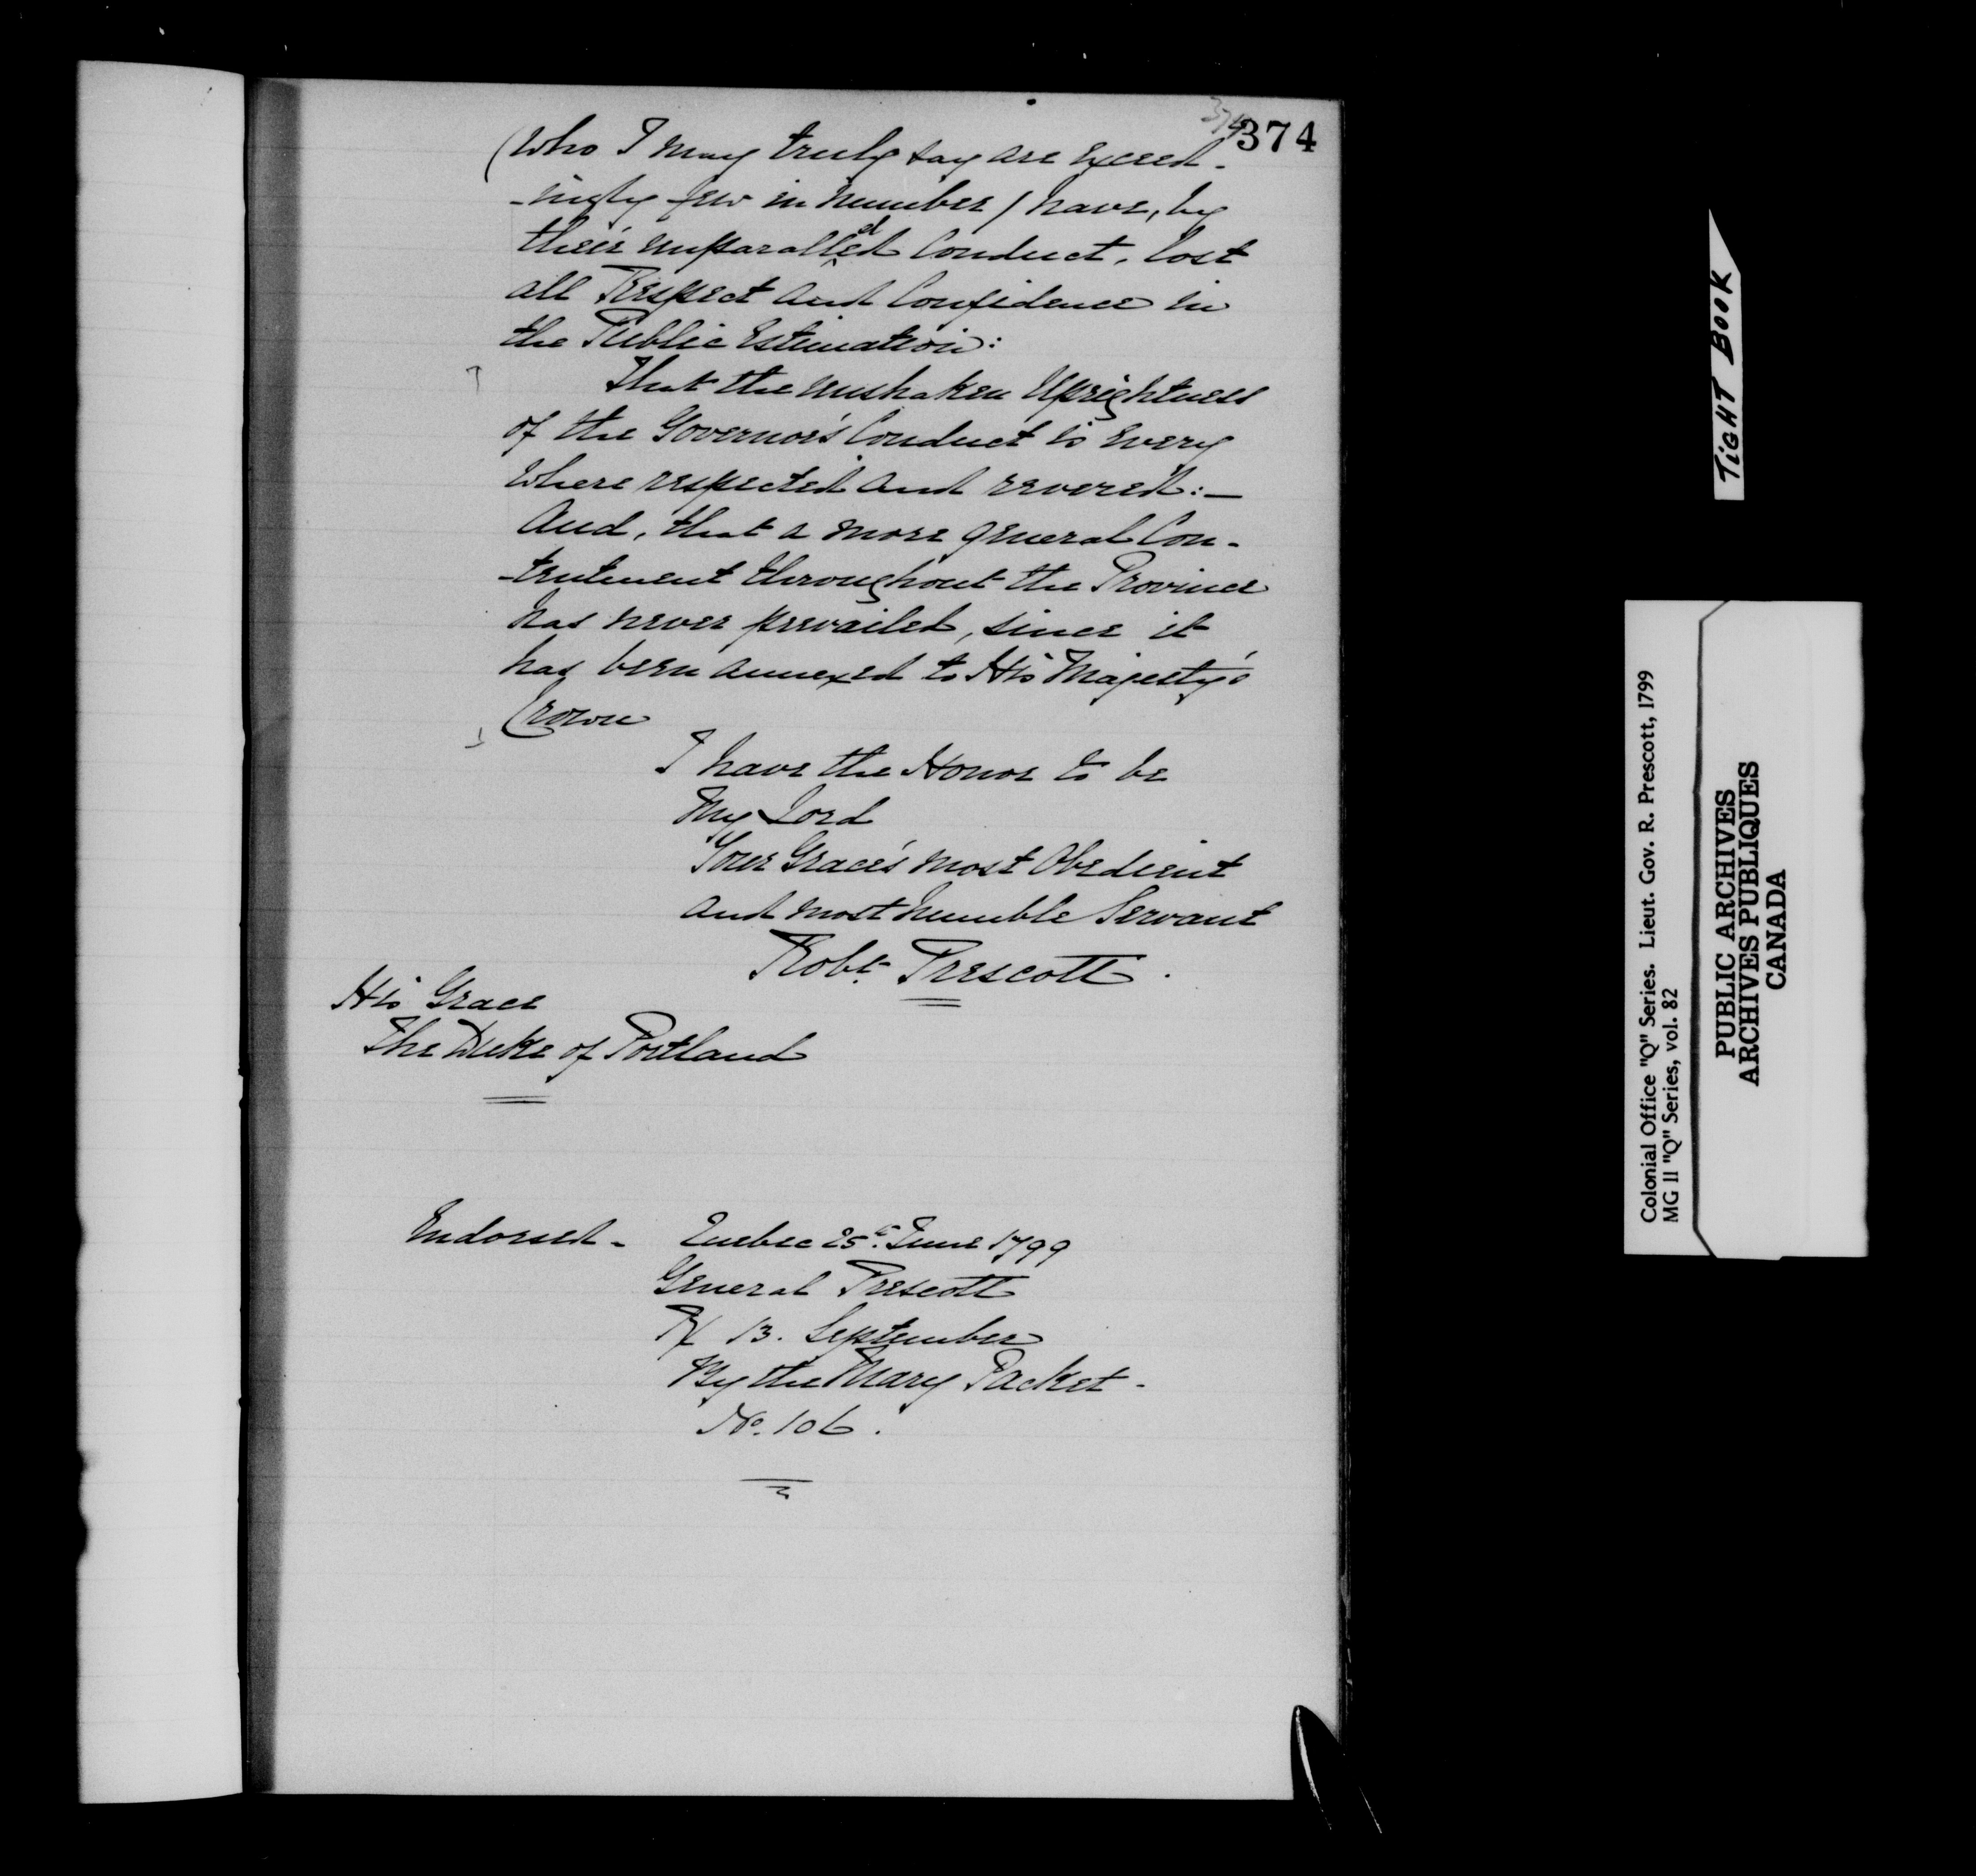 374
374
(Who I may truly say are exceed-
-ingly few in number / have, by
their unparalleled Conduct, lost
all Respect and Confidence in
the Public Estimation:
That the unshaken Uprightness
of the Governor's Conduct is every
where respected and revered:—
And, that a more general Con-
-tentment throughout the Province
has never prevailed, since it
has been annexed to His Majesty's
Crown
I have the Honor to be
My Lord
Your Grace's most Obedient
and most humble Servant
Robt. Prescott.
His Grace
The Duke of Portland
Endorsed - Quebec 25th. June 1799
General Prescott
R/ 13. September
By the Mary Packet -
No. 106.
TIGHT BOOK
Colonial Office "Q" Series. Lieut. Gov. R. Prescott, 1799
MG II "Q" Series, vol. 82
PUBLIC ARCHIVES
ARCHIVES PUBLIQUES
CANADA